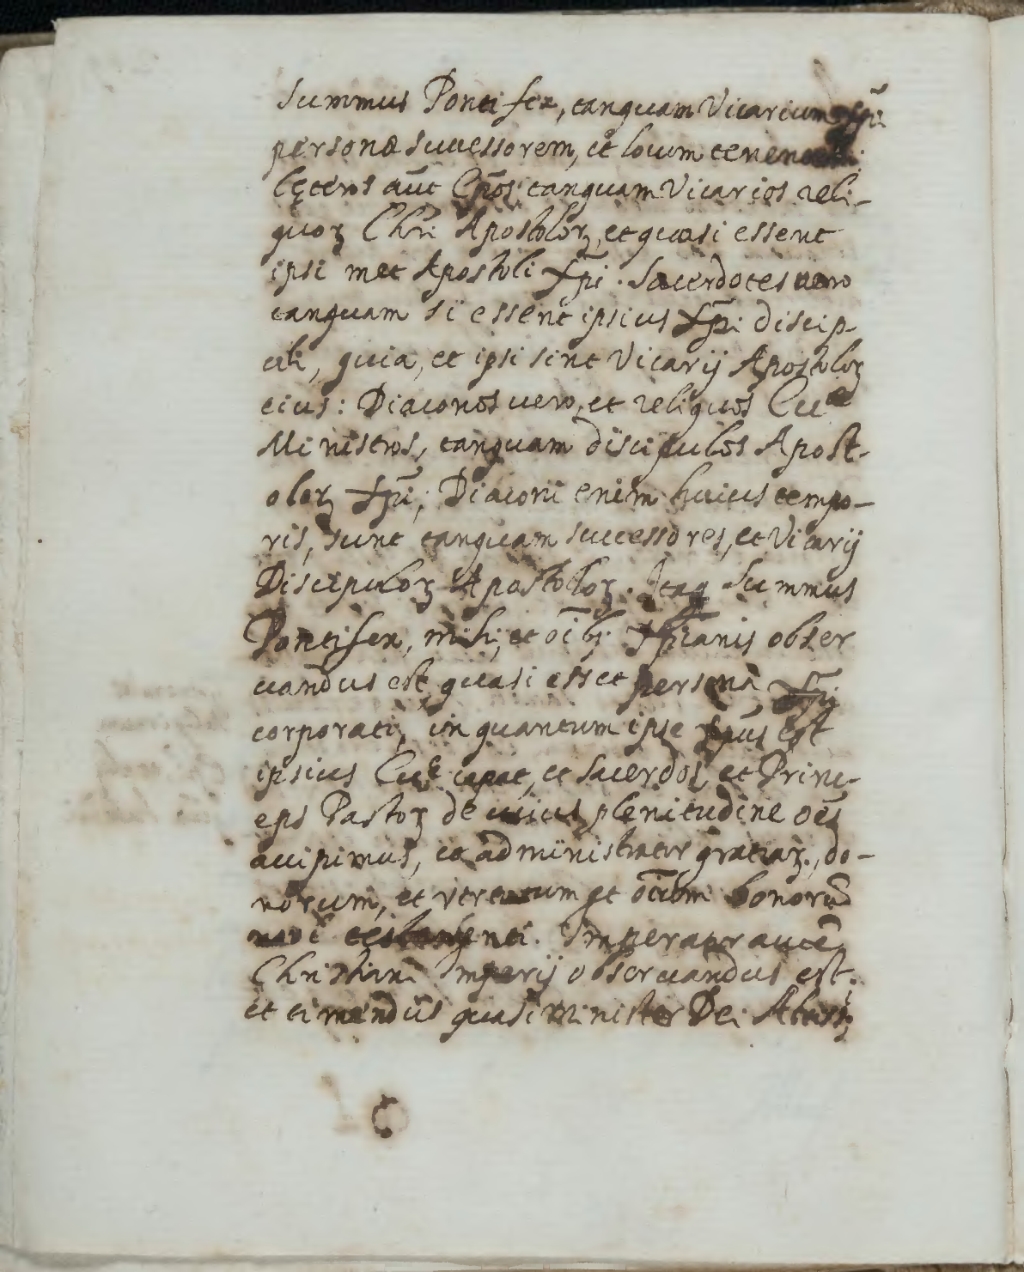 Summus Pontifex, tanquam Vicarium Xp̄i
personæ successorem, et locum tenentem:
Cęteros aūt Ep̄os; tanquam Vicarios reli-
quoꝝ Chri Apostoloꝝ, et quasi essent
ipsi met Apostoli Xp̄i. Sacerdotes vero
tanquam si essent ipsius Xp̄i discip-
uli, quia, et ipsi sint Vicarij Apostoloꝝ
eius: Diaconos vero, et reliquos
Ministros, tanquam discipulos Apost-
oloꝝ Xp̄i; Diaconi enim huius tempo-
ris, sunt tanquam successores, et Vicarij
Discipuloꝝ Apostoloꝝ. Itaq Summus
Pontifex, mihi, et oīb; Xp̄ianis obser
uandus est, quasi esset persona Xp̄i
corporati, in quantum ipse Xp̄us est
ipsius caput, et Sacerdos, et Princ-
eps Pastoꝝ de cuius plenitudine oēs
accipimus, et administrator gratiaꝝ, do-
norum, et virtutum et bonorū
noui testamenti. Imperator autē
Christiani Imperij obseruandus est.
et timendus quasi Minister Dei